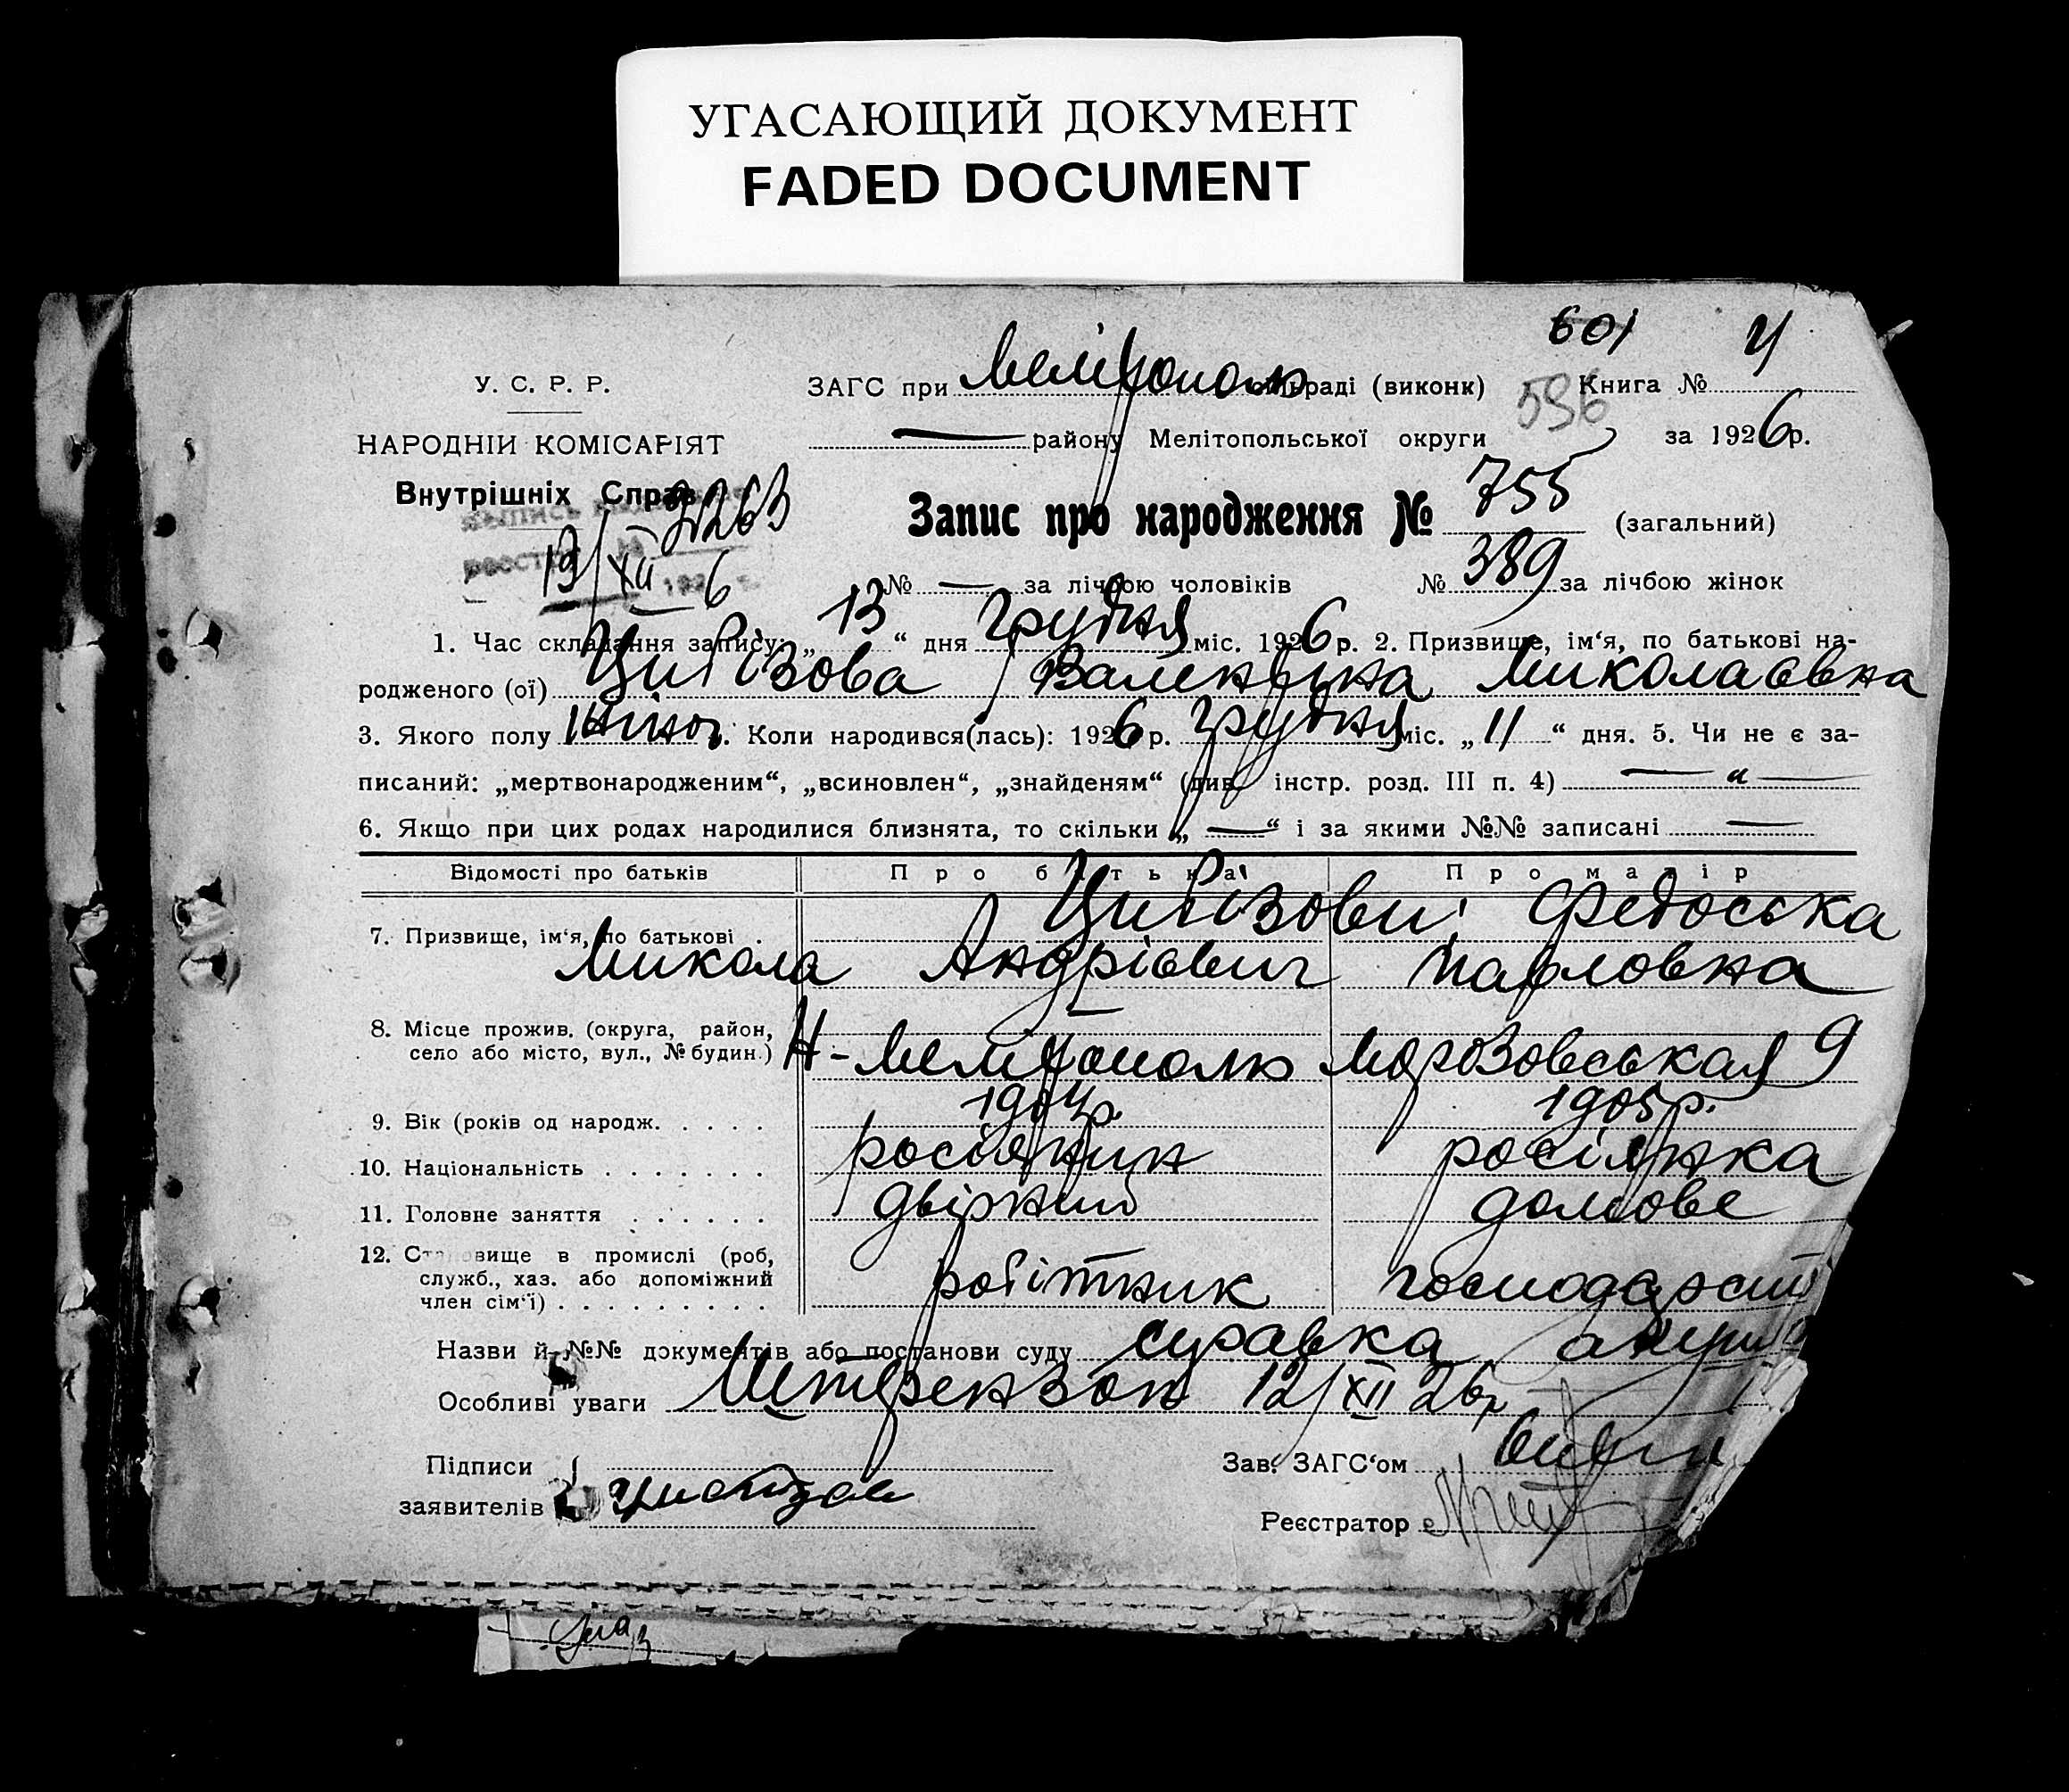 УГАСАЮЩИЙ ДОКУМЕНТ
FADED DOCUMENT
601 4
У. С. Р. Р.
ЗАГС при Мелітополь сільраді (виконк) 596 Книга №
НАРОДНІЙ КОМІСАРІЯТ
— району Мелітопольської округи за 1926 р.
Внутрішніх Справ
Запис про народження № 755 (загальний)
13/XII 6
№ — за лічбою чоловіків № 389 за лічбою жінок
1. Час складання запису: „13“ дня Грудня міс. 1926 р. 2. Призвище, ім‘я, по батькові на-
родженого (ої) Цибізова Валентина Миколаєвна
3. Якого полу жіноч. Коли народився(лась): 1926 р. Грудня міс. „11“ дня. 5. Чи не є за-
писаний: „мертвонародженим“, „всиновлен“, „знайденям“ (див. інстр. розд. III п. 4) — „ —
6. Якщо при цих родах народилися близнята, то скільки „—“ і за якими №№ записані —
Відомості про батьків Про батька Про матір
Цибізови: Федоська
7. Призвище, ім‘я, по батькові .
Микола Андрієвич Павловна
8. Місце прожив. (округа, район,
село або місто, вул., № будин.) Н-Мелітополь Морозовськая 9
9. Вік (років од народж. . . . . 1904р. 1905р.
10. Національність . . . . . . . росіянин росіянка
11. Головне заняття . . . . . . двірник домове
12. Становище в промислі (роб,
служб., хаз. або допоміжний
член сім‘ї) . . . . . . . . . робітник господарст
Назви й №№ документів або постанови суду справка акуш
Особливі уваги 12/XII 26р
Підписи
Зав. ЗАГС‘ом
заявителів
Реєстратор